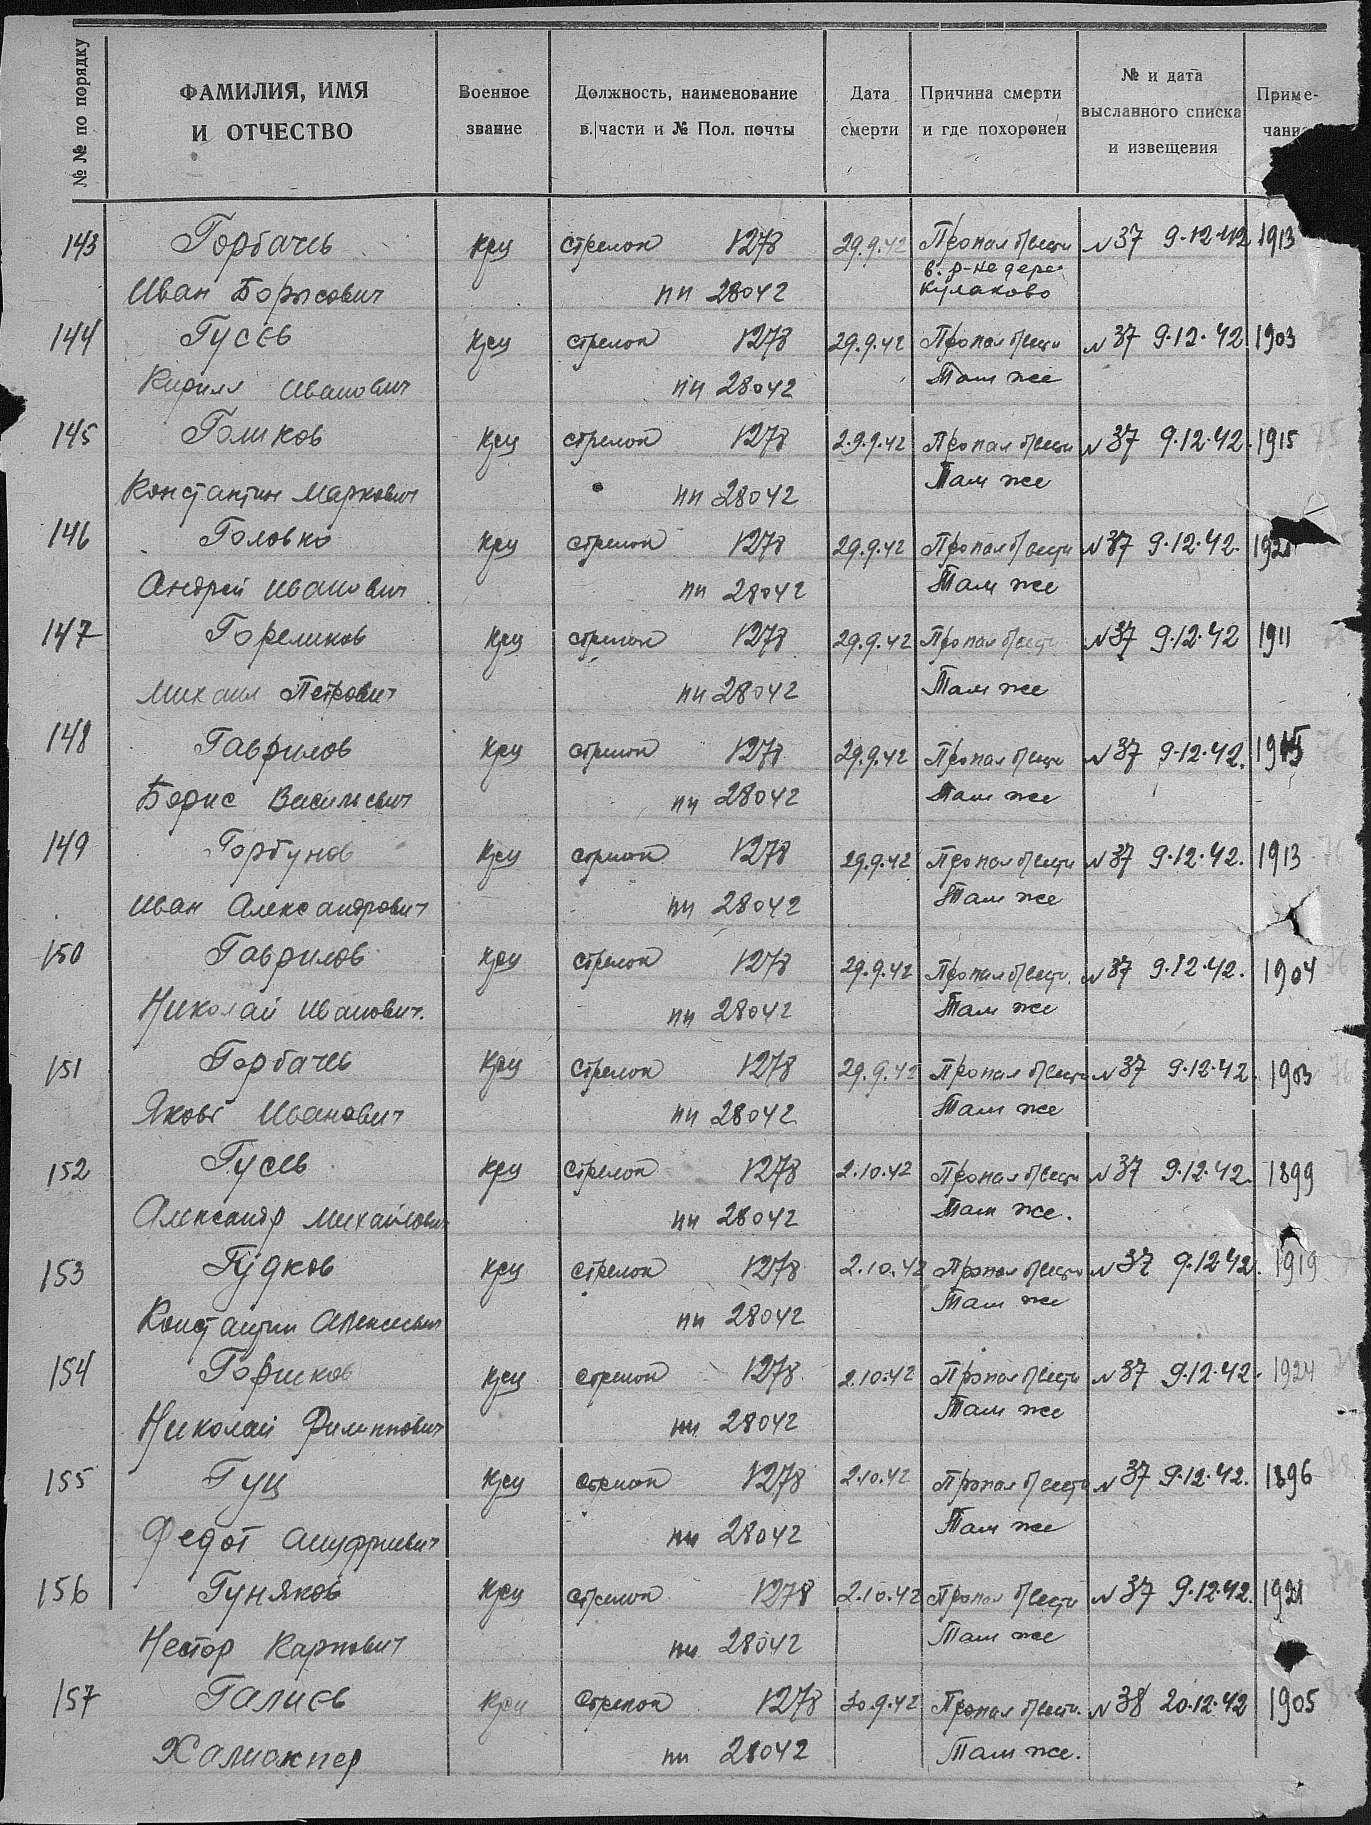 № № по порядку
ФАМИЛИЯ, ИМЯ И ОТЧЕСТВО
Военное звание
Должность, наименование в. части и № Пол. почты
Дата смерти
Причина смерти и где похоронен
№ и дата высланного списка и извещения
Приме-
143 Горбачев крц стрелок 1278 29.9.42 Пропал б/вести №37 9.12.42 1913
Иван Борисович пп 28042 в р-не дере Кулаково
144 Гусев крц стрелок 1278 29.9.42 Пропал б/вести №37 9.12.42 1903
Кирилл Иванович пп 28042 Там же
145 Голиков крц стрелок 1278 29.9.42 Пропал б/вести №37 9.12.42. 1915
Константин Маркович пп 28042 Там же
146 Головко крц стрелок 1278 29.9.42 Пропал б/вести №37 9.12.42.
Андрей Иванович пп 28042 Там же
147 Гореликов крц стрелок 1278 29.9.42 Пропал б/вести №37 9.12.42 1911
Михаил Петрович пп 28042 Там же
148 Гаврилов крц стрелок 1278 29.9.42 Пропал б/вести №37 9.12.42.
Борис Васильевич пп 28042 Там же
149 Горбунов крц стрелок 1278 29.9.42 Пропал б/вести №37 9.12.42. 1913
Иван Александрович пп 28042 Там же
150 Гаврилов крц стрелок 1278 29.9.42 Пропал б/вести. №37 9.12.42. 1904
Николай Иванович. пп 28042 Там же
151 Горбачев крц стрелок 1278 29.9.42 Пропал б/вести №37 9.12.42. 1903
Яков Иванович пп 28042 Там же
152 Гусев крц стрелок 1278 2.10.42 Пропал б/вести №37 9.12.42. 1899
Александр Михайлович пп 28042 Там же.
153 Гудков крц стрелок 1278 2.10.42 Пропал б/вести №37 9.12.42. 1919
Константин Алексеевич пп 28042 Там же
154 Горшков крц стрелок 1278 2.10.42 Пропал б/вести №37 9.12.42. 1924
Николай Филиппович пп 28042 Там же
155 Гуц крц стрелок 1278 2.10.42 Пропал б/вести №37 9.12.42. 1896
Федот Ануфриевич пп 28042 Там же
156 Гуняков крц стрелок 1278 2.10.42 Пропал б/вести №37 9.12.42. 1921
Нестор Карпович пп 28042 Там же
157 Галиев крц Стрелок 1278 30.9.42 Пропал б/вести. №38 20.12.42 1905
Халиакпер пп 28042 Там же.